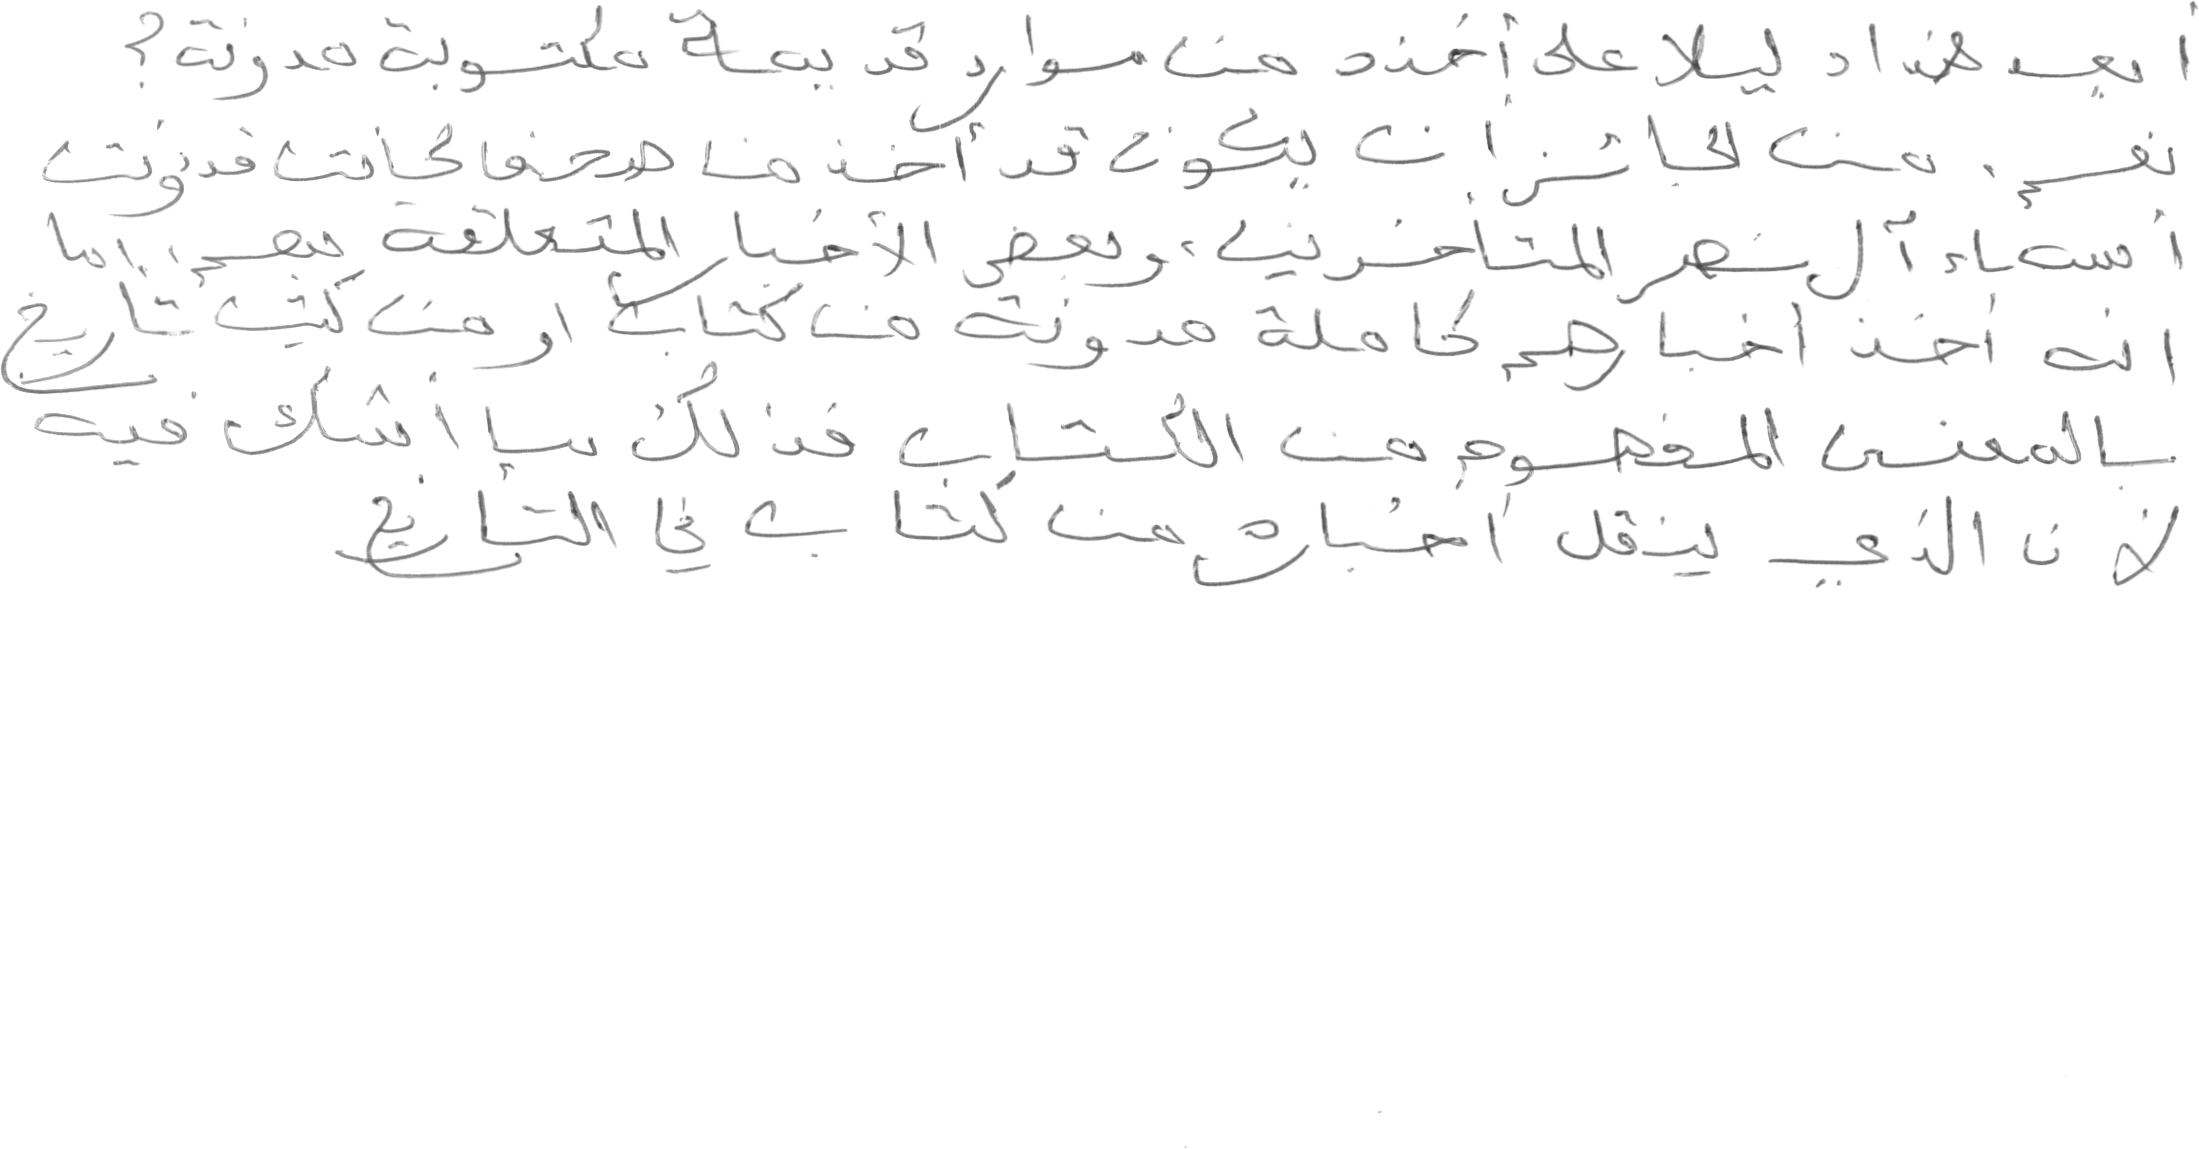 أيعد هذا دليلا على أخذه من موارد قديمة مكتوبة مدونة؟
نعم. من الجائز أن يكون قد أخذ من صحف كانت قد دونت
أسماء آل نصر المتأخرين، وبعض الأخبار المتعلقة بهم. اما
انه أخذ أخبارهم كاملة مدونة من كتاب او من كتب تاريخ
بالمعنى المفهوم من الكتاب فذلك ما أشك فيه
لأن الذي ينقل أخباره من كتاب في التاريخ